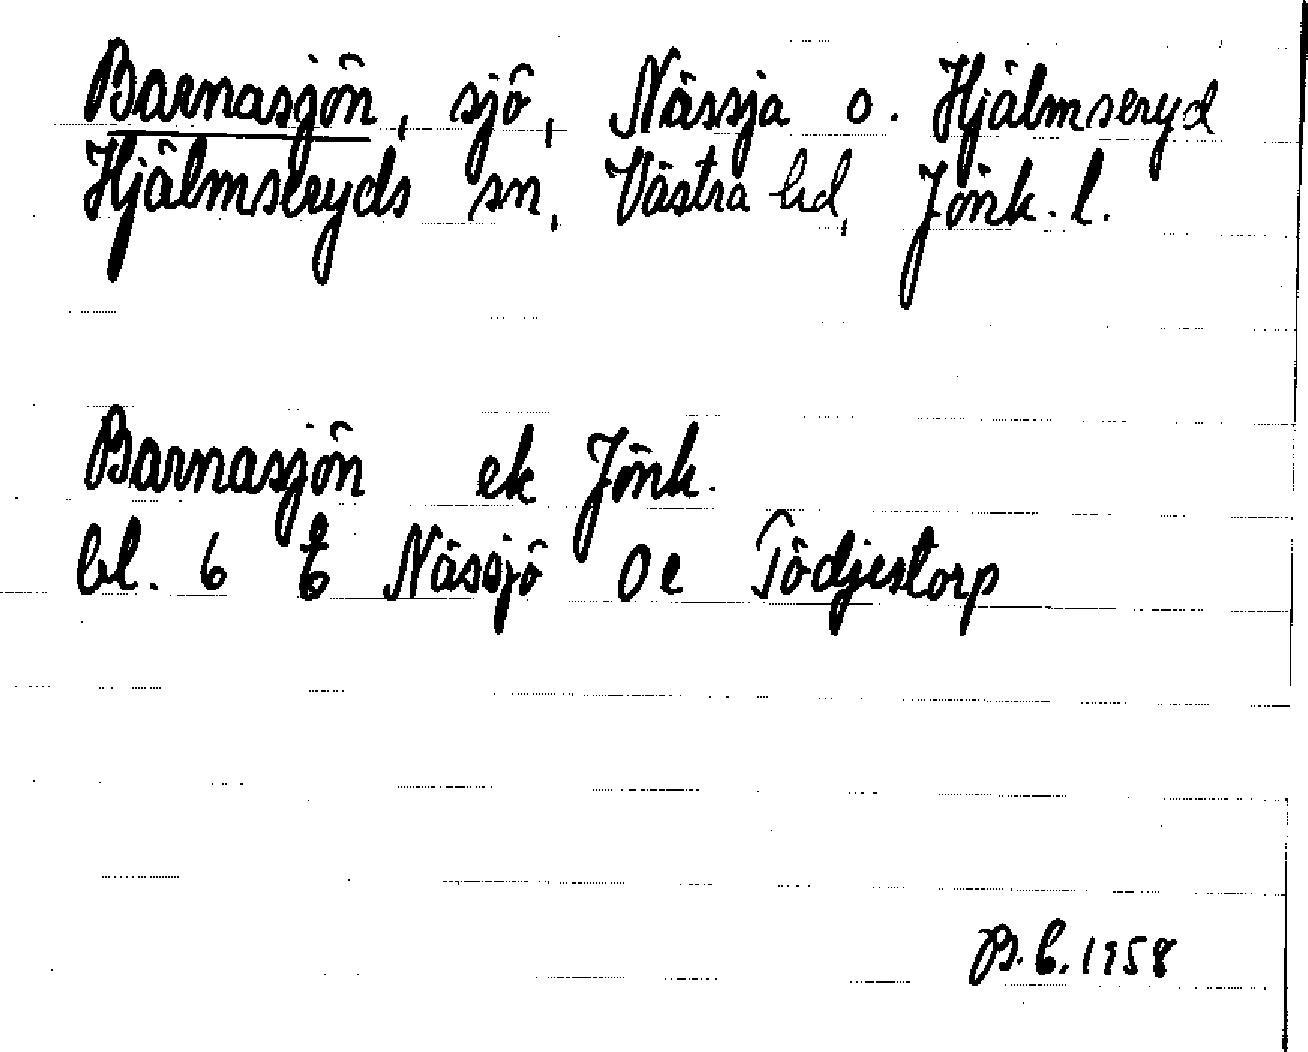 Barnasjön, sjö, Nässja o. Hjälmseryd
Hjälmseryds sn, Västra hd, Jönk. l.
Barnasjön ek Jönk.
bl. 6 Nässjö Oe Tödjestorp
B.C. 1958